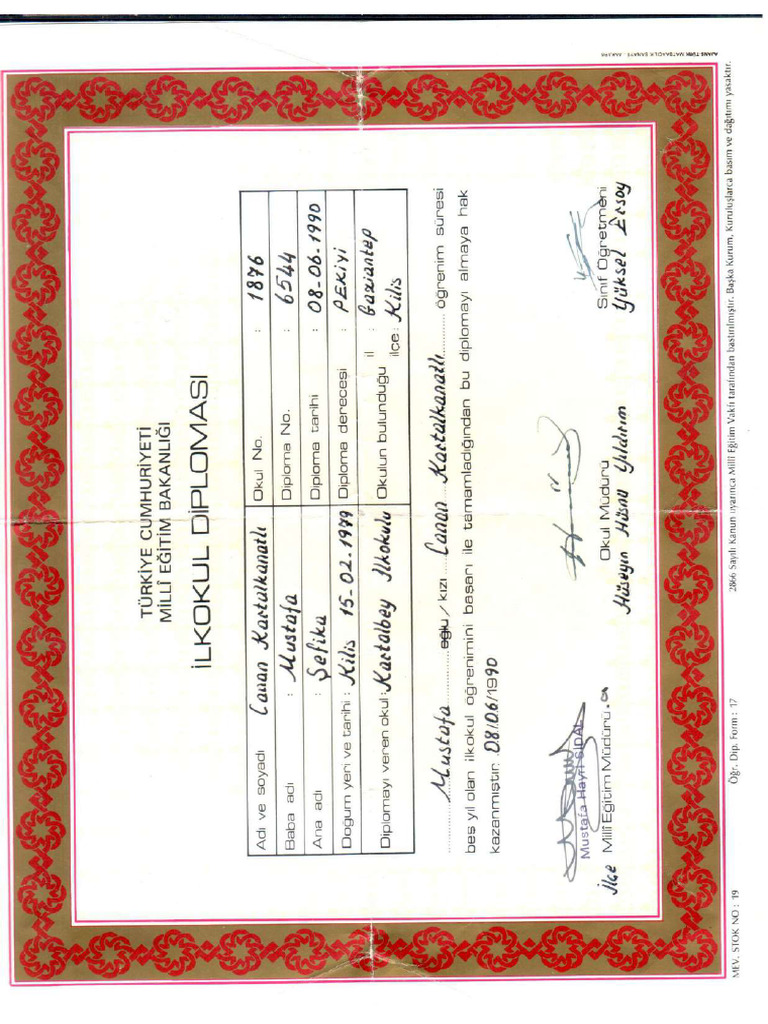 AJANS-TÜRK MATBAACILIK SANAYİİ - ANKARA
TÜRKİYE CUMHURİYETİ
MİLLÎ EĞİTİM BAKANLIĞI
İLKOKUL DİPLOMASI
Adı ve soyadı : Canan Kartalkanatlı Okul No. : 1876
Baba adı : Mustafa Diploma No. : 6544
Ana adı : Şefika Diploma tarihi : 08-06-1990
Doğum yeri ve tarihi : Kilis 15-02-1979 Diploma derecesi : PEKiyi
Diplomayı veren okul : Kartalbey İlkokulu Okulun bulunduğu il : Gaziantep
ilçe : Kilis
Mustafa oğlu / kızı Canan Kartalkanatlı öğrenim süresi
beş yıl olan ilkokul öğrenimini başarı ile tamamladığından bu diplomayı almaya hak
kazanmıştır. 08/06/1990
Mustafa Hayri SIDAL
İlçe Millî Eğitim Müdürü
Okul Müdürü
Hüseyin Hüsnü Yıldırım
Sınıf Öğretmeni
Yüksel Ersoy
MEV. STOK NO : 19 Öğr. Dip. Form : 17 2866 Sayılı Kanun uyarınca Millî Eğitim Vakfı tarafından bastırılmıştır. Başka Kurum, Kuruluşlarca basım ve dağıtımı yasaktır.